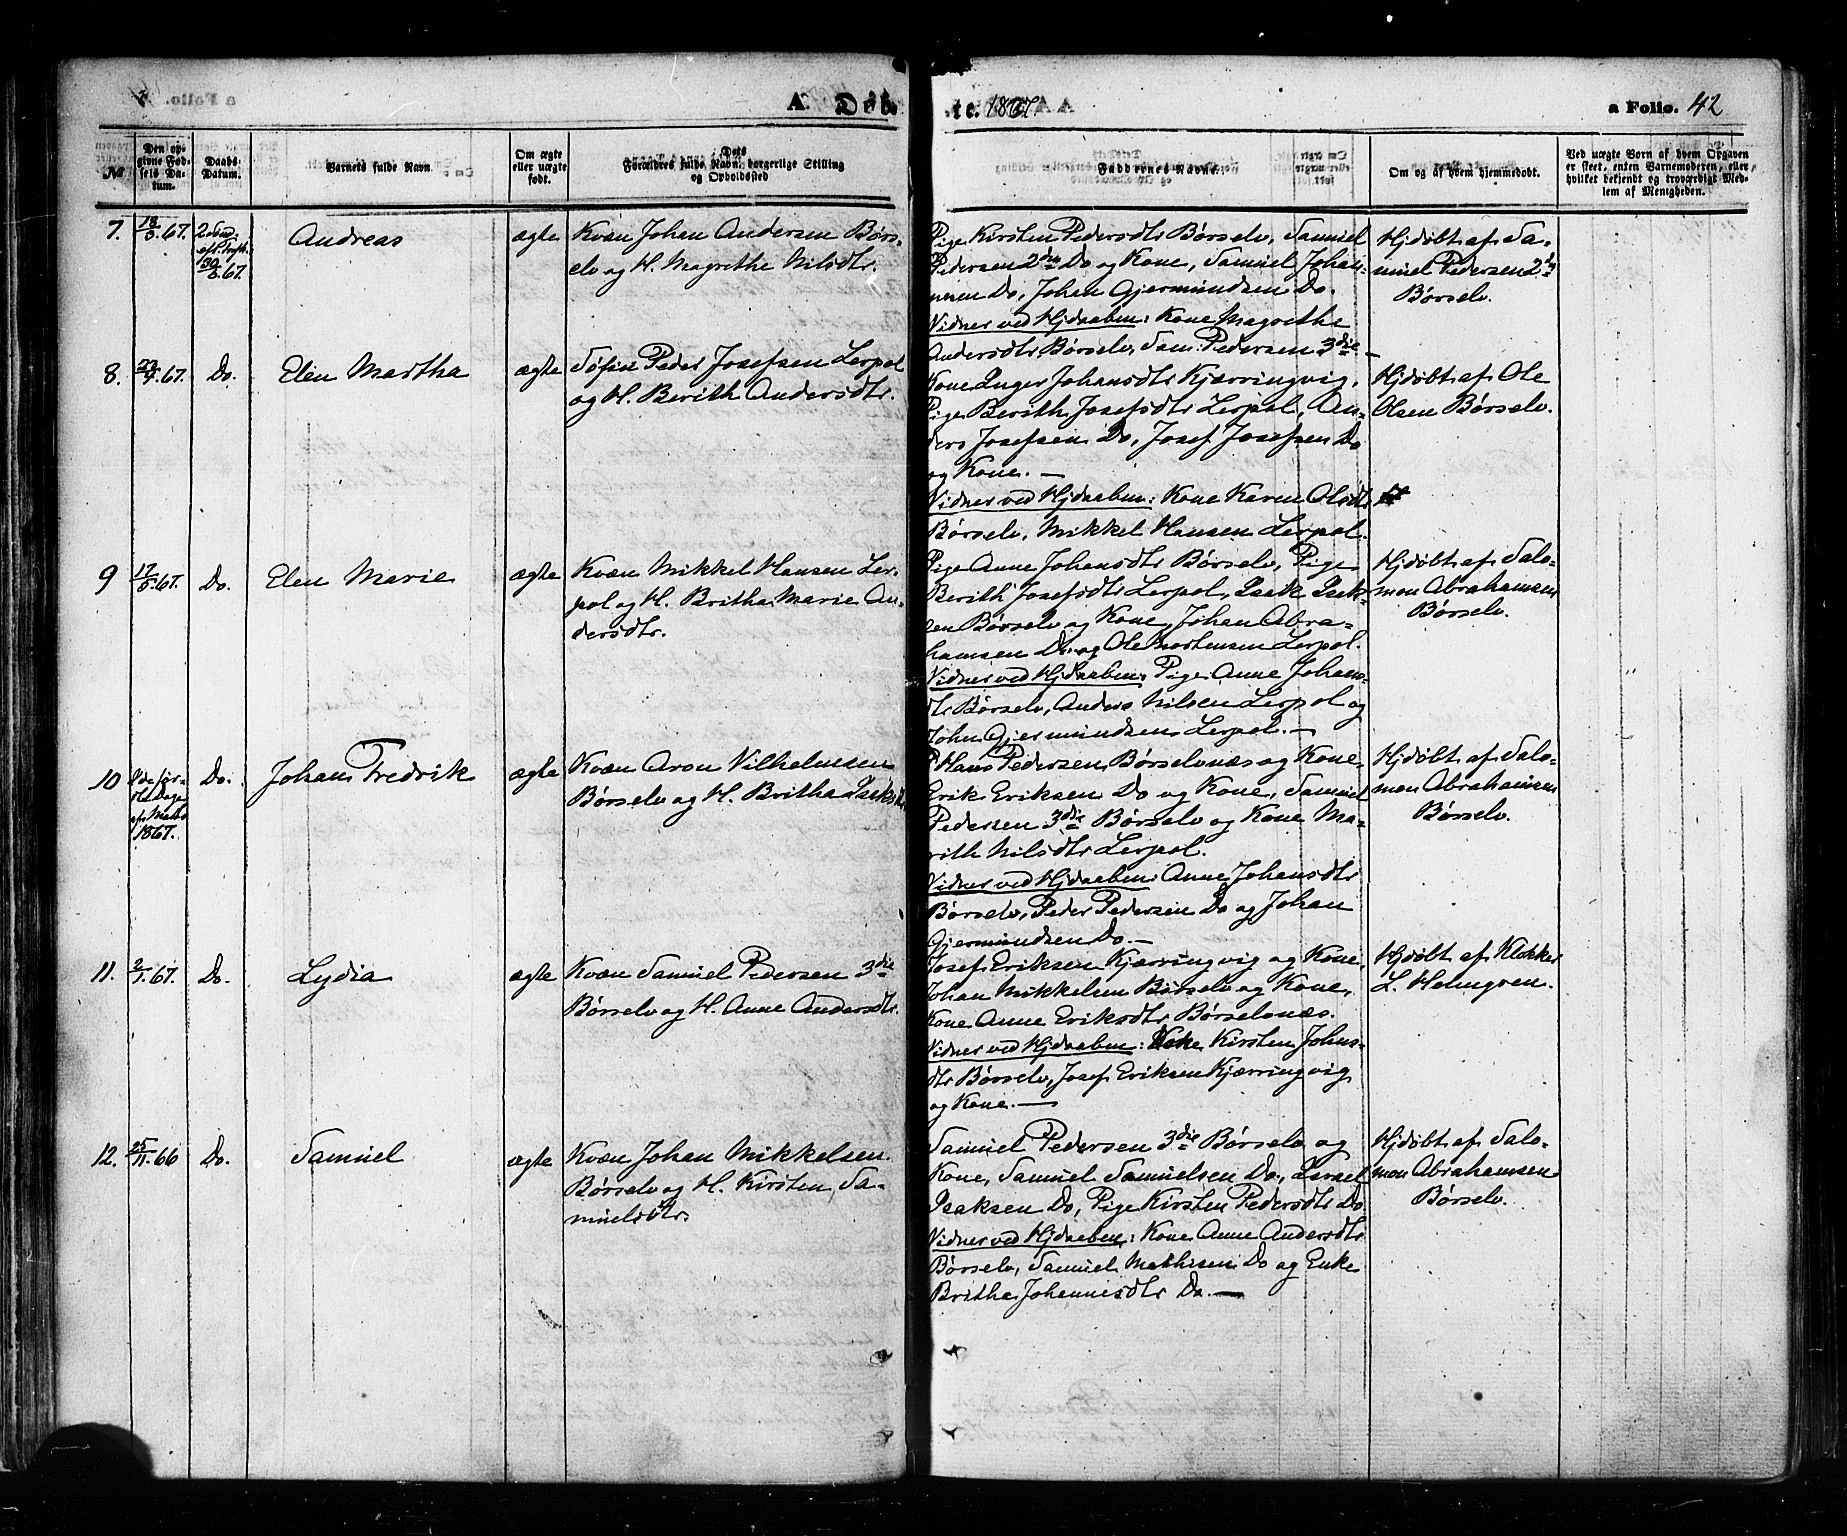 A. Døbte. 1867.
a Folio. 42
No
Den opgivne Fødsels Datum.
Daabs-Datum.
Barnets fulde Navn
Om ægte eller uægte født.
Dets Forældres fulde Navn, borgerlige Stilling og Opholdssted
Faddernes Navne.
Om og af hvem hjemmedøbt.
Ved uægte Børn af hvem Opgaven er skeet, enten Barnemoderen, eller hvilket bekjendt og troværdigt Medlem af Menigheden.
7.
67.
Andreas
ægte
Kvæn Johan Andersen Børs-
elv og H. Magrethe Nilsdtr.
Pige Kirsten Pedersdtr Børselv, Samuel
Pedersen 2den Do og Kone, Samuel Johan-
nesen Do, Johan Gjermundsen Do.
Vidner ved Hjdaaben: Kone Magrethe
Andersdtr Børselv, Sam: Pedersen 3die
Hjdøbt af Sa-
muel Pedersen 2den
Børselv.
8.
67.
Do.
Elen Martha
ægte
Søfin Peder Josefsen Lerpol
og H. Berith Andersdtr.
Kone Inger Johansdtr Kjærringvig,
Pige Berith Josefsdtr Lerpol, An-
ders Josefsen Do, Josef Josefsen Do
og Kone. —
Vidner ved Hjdaaben: Kone Karen Olsdtr
Børselv, Mikkel Hansen Lerpol.
Hjdøbt af Ole
Olsen Børselv.
9
17/5. 67.
Do.
Elen Marie
ægte
Kvæn Mikkel Hansen Ler-
pol og H. Britha Marie An-
dersdtr.
Pige Anne Johansdtr Børselv, Pige
Berith Josefsdtr Lerpol, Isak Isak-
sen Børselv og Kone, Johan Abra-
hamsen Do. og Ole Mortensen Lerpol.
Vidner ved Hjdaaben: Pige Anne Johans-
dtr Børselv, Anders Nilsen Lerpol og
John Gjermundsen Lerpol. —
Hjdøbt af Salo-
mon Abrahamsen
Børselv.
10
1867.
Do.
Johan Fredrik
ægte
Kvæn Aron Vilhelmsen
Børselv og H. Britha Isaksdtr
Hans Pedersen Børselvnæs og Kone
Erik Eriksen Do og Kone, Samuel
Pedersen 3die Børselv og Kone Ma-
rith Nilsdtr Lerpol.
Vidner ved Hjdaaben: Anne Johansdtr
Børselv, Peder Pedersen Do og Johan
Gjermundsen Do. —
Hjdøbt af Salo-
mon Abrahamsen
Børselv.
11.
2/1. 67.
Do.
Lydia
ægte
Kvæn Samuel Pedersen 3die
Børselv og H. Anne Andersdtr.
Josef Eriksen Kjærringvig og Kone,
Johan Mikkelsen Børselv og Kone,
Kone Anne Eriksdtr Børselvnæs.
Vidner ved Hjdaaben: Kirsten Johns-
dtr Børselv, Josef Eriksen Kjærringvig
og Kone. —
Hjdøbt af Klokker
L. Holmgren.
12.
25/11. 66
Do.
Samuel
ægte
Kvæn Johan Mikkelsen
Børselv og H. Kirsten Sa-
muelsdtr.
Samuel Pedersen 3die Børselv og
Kone, Samuel Samuelsen Do, Israel
Isaksen Do, Pige Kirsten Pedersdtr Do
Vidner ved Hjdaaben: Kone Anne Andersdtr
Børselv, Samuel Mathisen Do og Enke
Britha Johannesdtr Do. —
Hjdøbt af Salo-
mon Abrahamsen
Børselv.